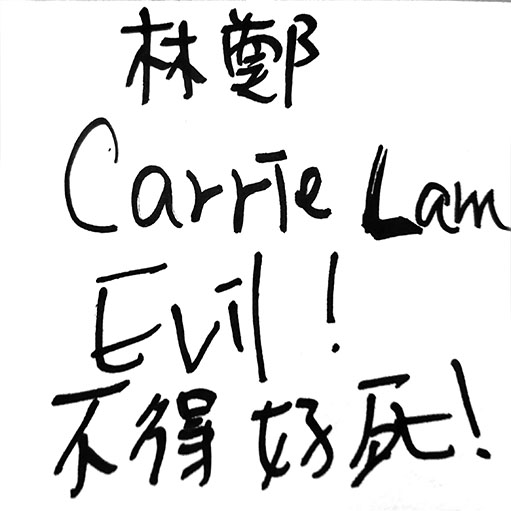 林鄭
Carrie Lam
Evil!
不得好死!